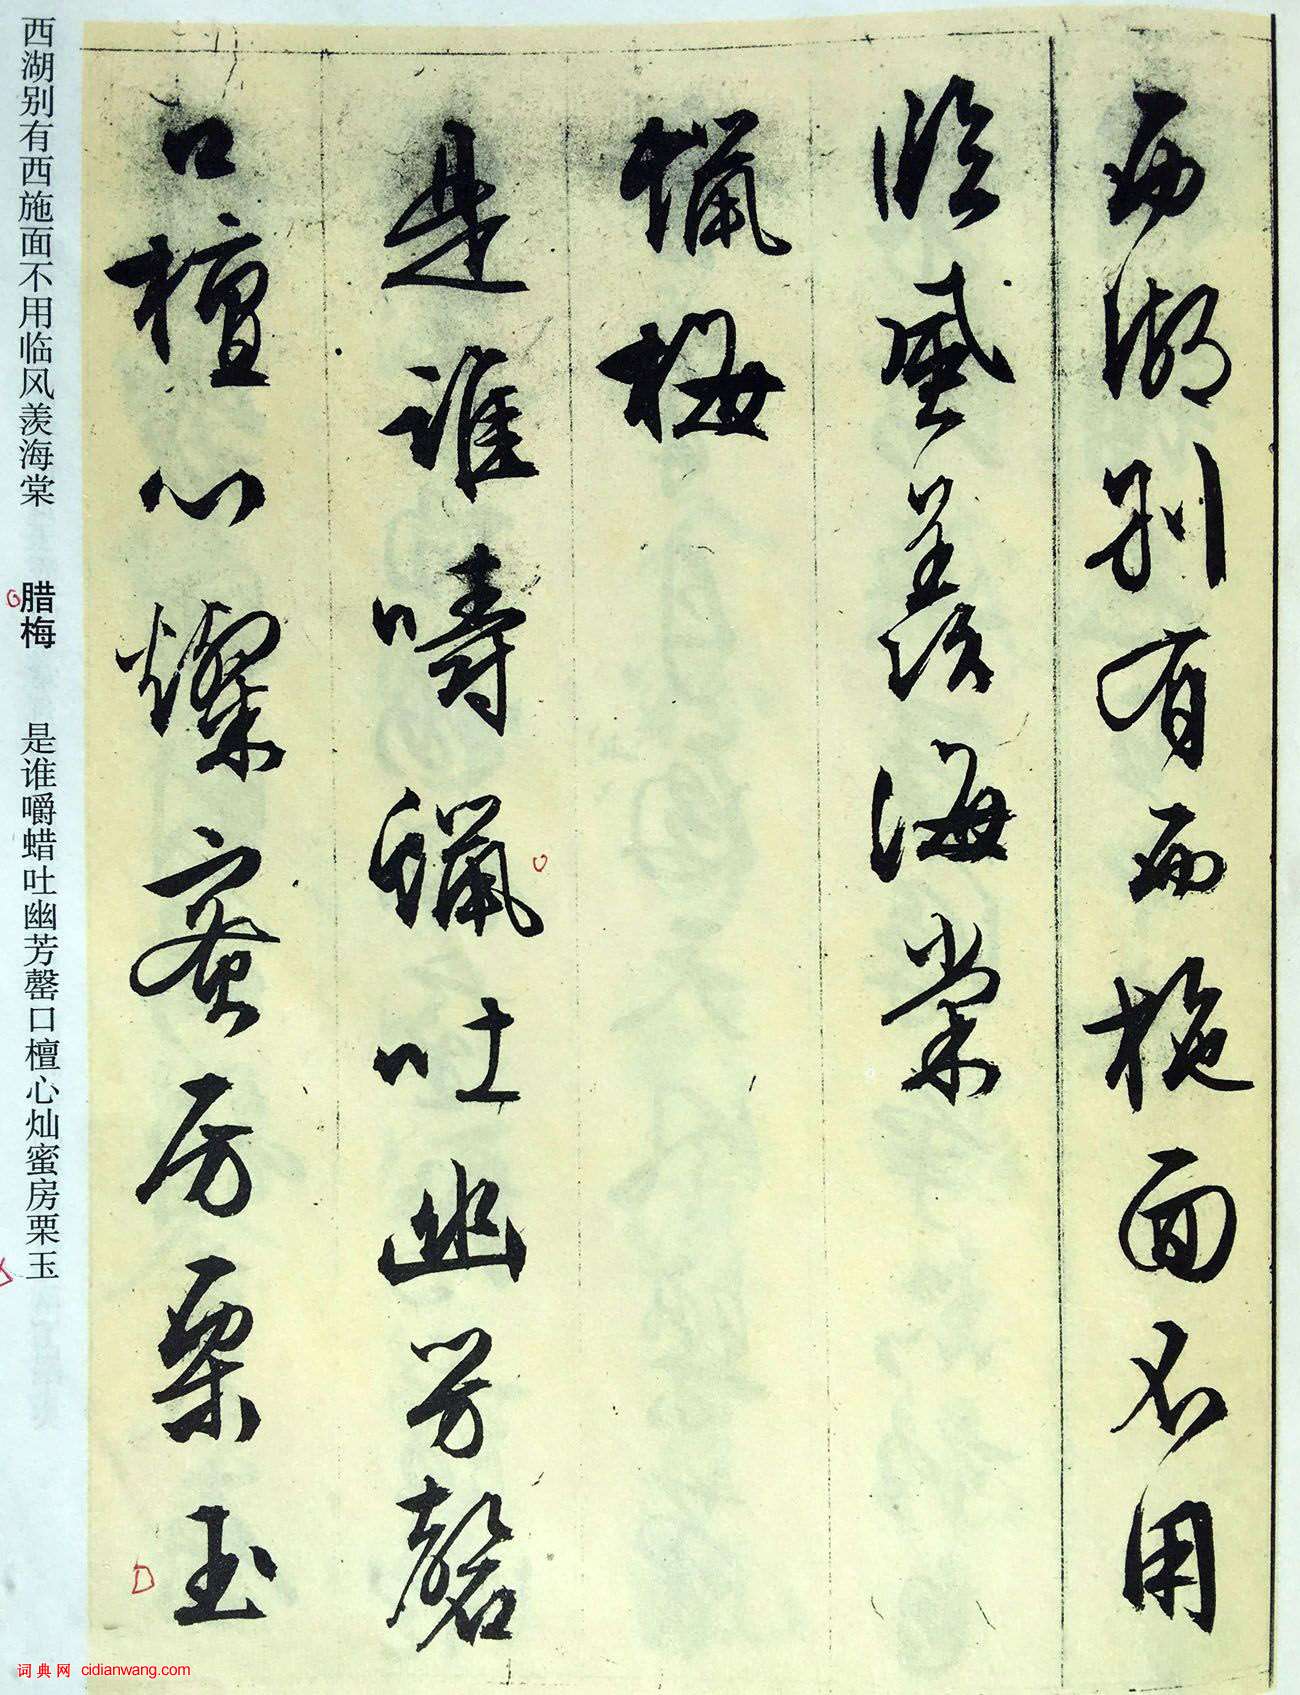 西湖别有西施面不用
临风羡海棠
蜡梅
是谁嚼蠟吐幽芳磬
口檀心燦蜜房栗玉
西湖别有西施面不用临风羡海棠
腊梅
是谁嚼蜡吐幽芳罄口檀心灿蜜房栗玉
词典网 cidianwang.com